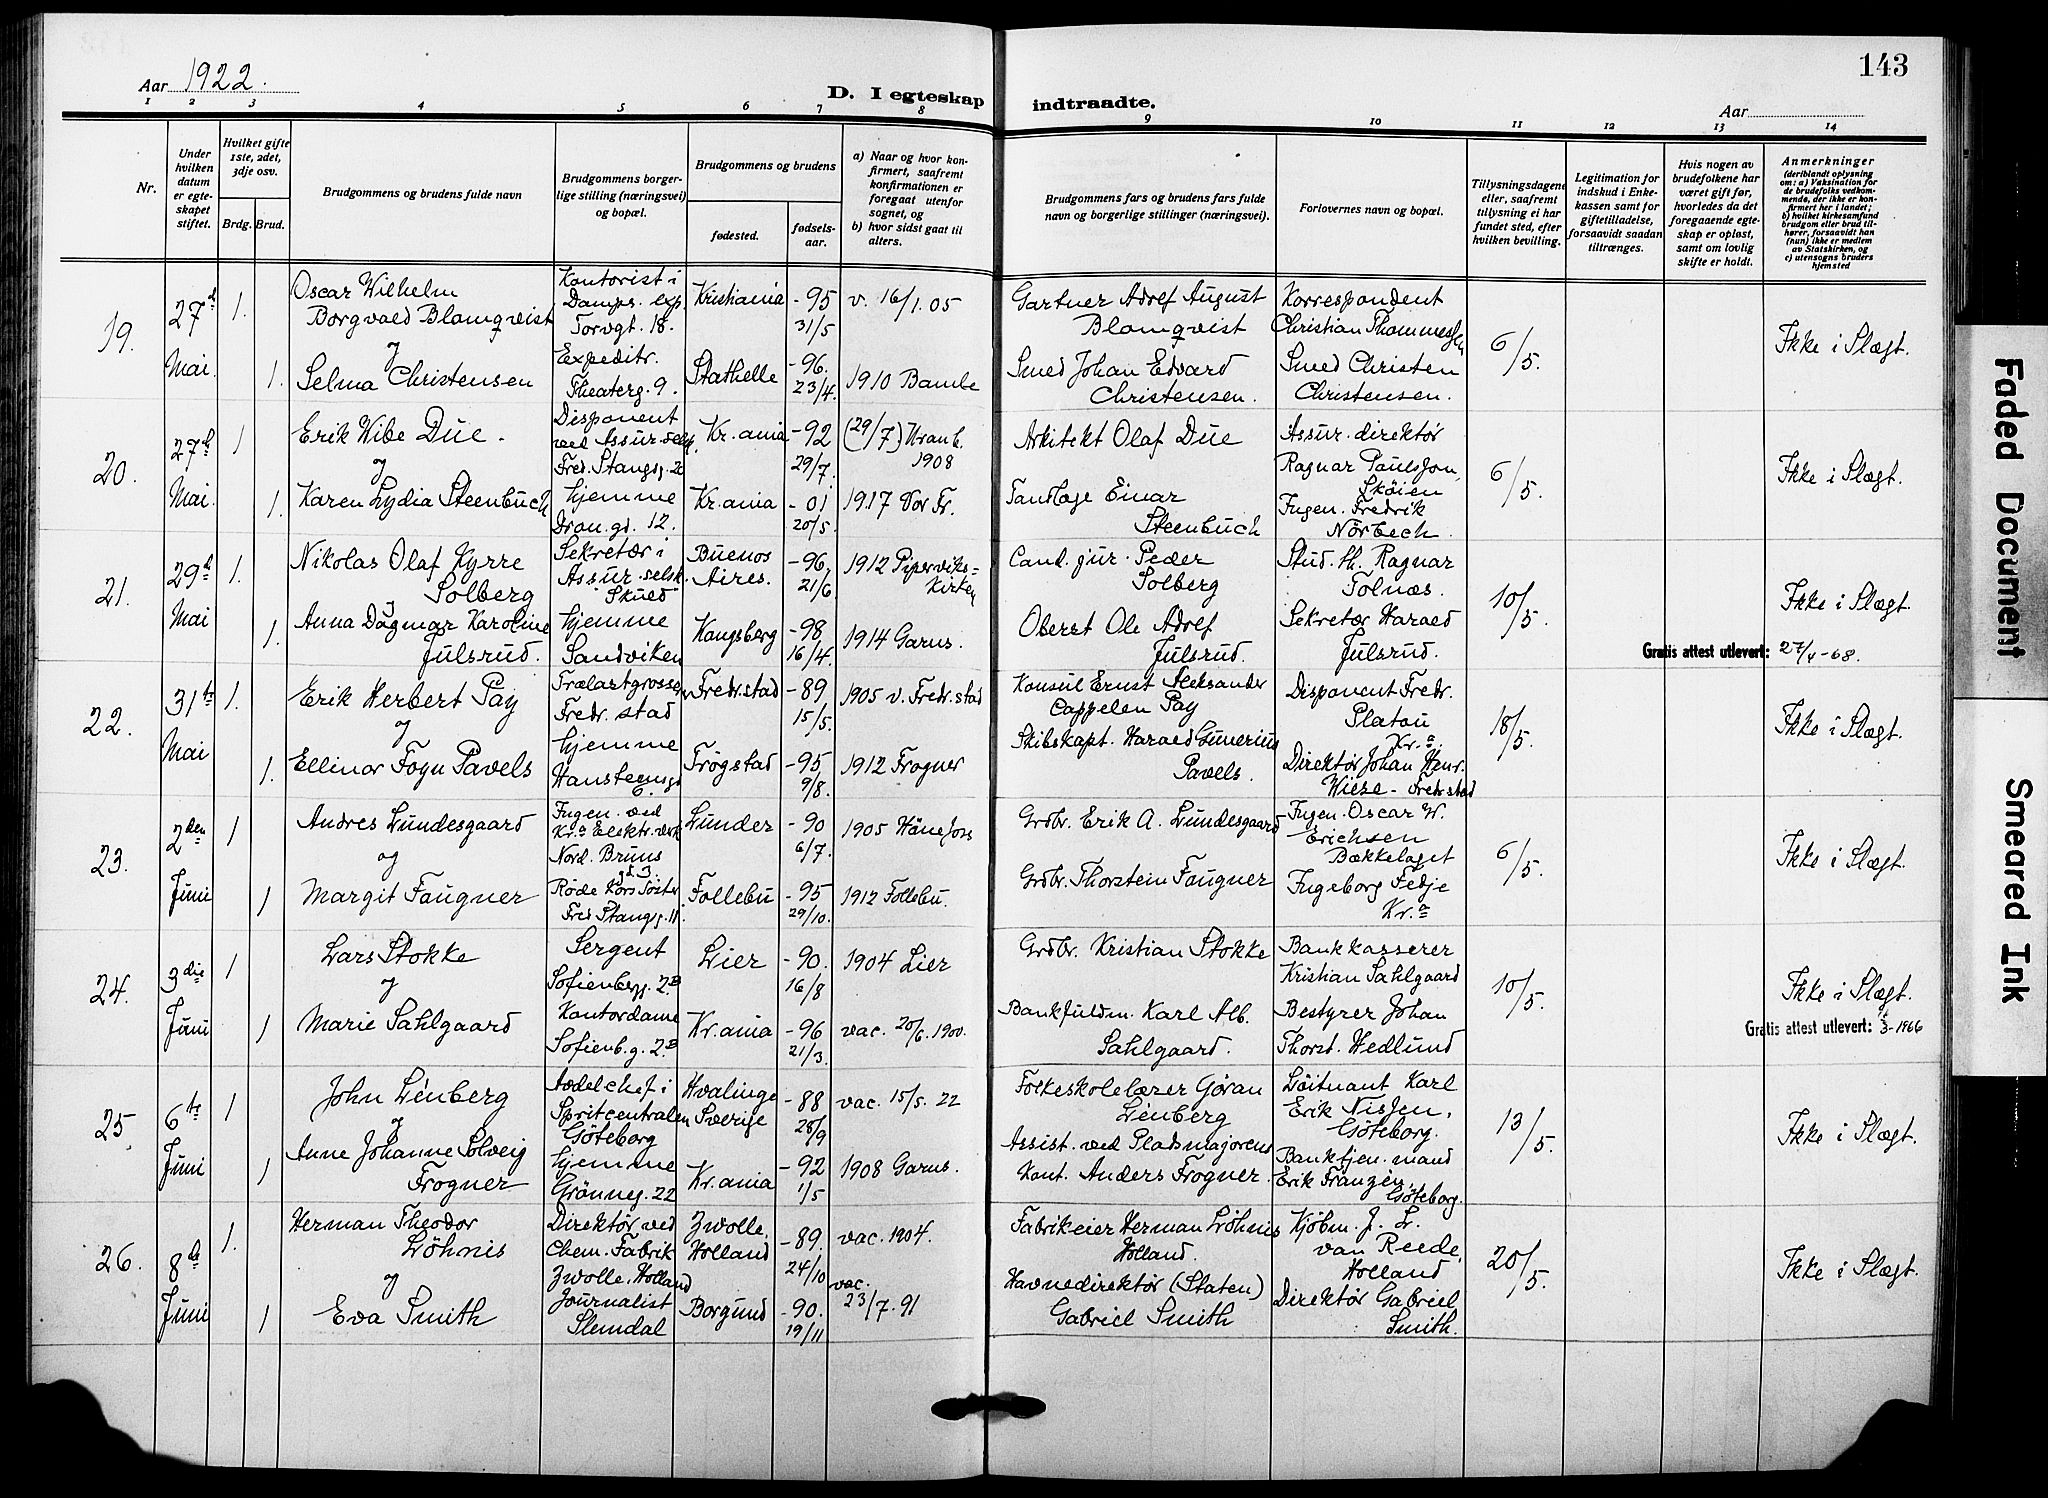 143
Aar 1922.
D. I egteskap indtraadte.
Aar
1 2 3 4 5 6 7 8 9 10 11 12 13 14
Nr.
Under hvilken datum er egteskapet stiftet.
Hvilket gifte 1ste, 2det, 3dje osv.
Brdg. Brud.
Brudgommens og brudens fulde navn
Brudgommens borgerlige stilling (næringsvei) og bopæl.
Brudgommens og brudens
fødested.
fødselsaar.
a) Naar og hvor konfirmert, saafremt konfirmationen er foregaat utenfor sognet, og
b) hvor sidst gaat til alters.
Brudgommens fars og brudens fars fulde navn og borgerlige stillinger (næringsvei).
Forlovernes navn og bopæl.
Tillysningsdagene eller, saafremt tillysning ei har fundet sted, efter hvilken bevilling.
Legitimation for indskud i Enkekassen samt for giftetilladelse, forsaavidt saadan tiltrænges.
Hvis nogen av brudefolkene har været gift før, hvorledes da det foregaaende egteskap er opløst, samt om lovlig skifte er holdt.
Anmerkninger
(deriblandt oplysning om: a) Vaksination for de brudefolks vedkommende, der ikke er konfirmert her i landet;
b) hvilket kirkesamfund brudgom eller brud tilhører, forsaavidt han (hun) ikke er medlem av Statskirken, og
c) utensogns bruders hjemsted
19.
27d Mai.
1.
Oscar Wilhelm
Borgvald Blomqvist
Kontorist i
Damps. exp.
Torvgt. 18.
Kristiania
-95
31/5
v. 16/1. 05
Gartner Adolf August
Blomqvist
Korrespondent
Christian Thommessen
6/5.
Ikke i Slægt.
og
1.
Selma Christensen
Expeditr.
Theaterg. 9.
Stathelle
-96.
23/4.
1910 Bamle
Smed Johan Edvard
Christensen.
Smed Christen
Christensen.
20.
27d Mai.
1
Erik Wibe Due.
Disponent
ved Assur. selsk.
Fred. Stangsg. 20
Kr.ania
-92
29/7.
(29/7) Uranb.
1908
Arkitekt Olaf Due
Assur. direktør
Ragnar Paulsson,
Skøien
6/5.
Ikke i Slægt.
og
1.
Karen Lydia Steenbuch
hjemme
Dron. gt. 12.
Kr.ania
-01
20/5.
1917 Vor Fr.
Tandlæge Einar
Steenbuch
Ingen. Fredrik
Nörbech.
21.
29d Mai
1.
Nikolas Olaf Kyrre
Solberg
Sekretær i
Assur. selsk.
Skuld
Buenos
Aires.
-96,
21/6.
1912 Piperviks=
Kirken
Cand. jur. Peder
Solberg
Stud. th. Ragnar
Tolnæs.
10/5.
Ikke i Slægt.
og
1.
Anna Dagmar Karoline
Julsrud.
hjemme
Sandviken
Kongsberg
-98
16/4.
1914 Garns.
Oberst Ole Adolf
Julsrud.
Sekretær Harald
Julsrud.
Gratis attest utlevert: 27/4-68.
22.
31te Mai
1.
Erik Herbert Pay
Trælastgrosser
Fredr.stad
Fredr.stad
-89
15/5.
1905 v. Fredr.stad
Konsul Ernst Aleksander
Cappelen Pay
Disponent Fredr.
Platou
Kr.a
18/5.
Ikke i Slægt.
og
1.
Ellinor Foyn Pavels
hjemme
Hansteensgt
6.
Trøgstad
-95
9/8.
1912 Frogner
Skibskapt. Harald Gunerius
Pavels.
Direktør Johan Henr.
Wiese - Fredrstad
23.
2den Juni
1
Andres Lundesgaard
Ingen. ved
Kr.a Elektr. verk
Nord. Bruns
gt. 3.
Lunder
-90
6/7.
1905 Hönefoss
Grdbr. Erik A. Lundesgaard
Ingen. Oscar W.
Erichsen
Bækkelaget
6/5.
Ikke i Slægt.
og
1
Margit Faugner
Røde Kors Søster
Fred Stangsg. 11.
Follebu
-95
29/10.
1912 Follebu.
Grdbr. Thorstein Faugner
Ingeborg Fedje
Kr.a
24.
3die Juni
1
Lars Stokke
Sergent
Sofienbergg. 2B
Lier
-90.
16/8
1904 Lier
Grdbr. Kristian Stokke
Bankkasserer
Kristian Sahlgaard
10/5.
Ikke i Slægt.
og
1
Marie Sahlgaard
Kontordame
Sofienb.g. 2B
Kr.ania
-96
21/3.
vac. 20/6. 1900.
Bankfuldm. Karl Alb.
Sahlgaard.
Bestyrer Johan
Thorst. Hedlund
Gratis attest utlevert: 3-1966
25.
6te Juni
1
John Lénberg
Avdelchef i
Spritcentralen
Göteborg
Hvalinge
Sverige
-88
28/9
vac. 15/5. 22
Folkeskolelærer Göran
Lénberg
Löitnant Karl
Erik Nissen,
Göteborg.
13/5.
Ikke i Slægt.
og
1
Anne Johanne Solveig
Frogner
hjemme
Grönneg. 22
Kr.ania
-92
1/5
1908 Garns.
Assist. ved Pladsmajorens
Kont. Anders Frogner.
Banktjen. mand
Erik Franzén,
Göteborg.
26.
8de Juni
1.
Herman Theodor
Löhnis
Direktør ved
Chem. Fabrik
Zwolle, Holland
Zwolle,
Holland
-89.
24/10
vac. 1904.
Fabrikeier Herman Löhnis
Holland.
Kjöbm. J. L.
van Reede,
Holland
20/5.
Ikke i Slægt.
og
1
Eva Smith
Journalist
Slemdal
Borgund
-90.
19/11
vac.
23/7. 91
Havnedirektør (Staten)
Gabriel Smith
Direktør Gabriel
Smith.
Faded Document
Smeared Ink